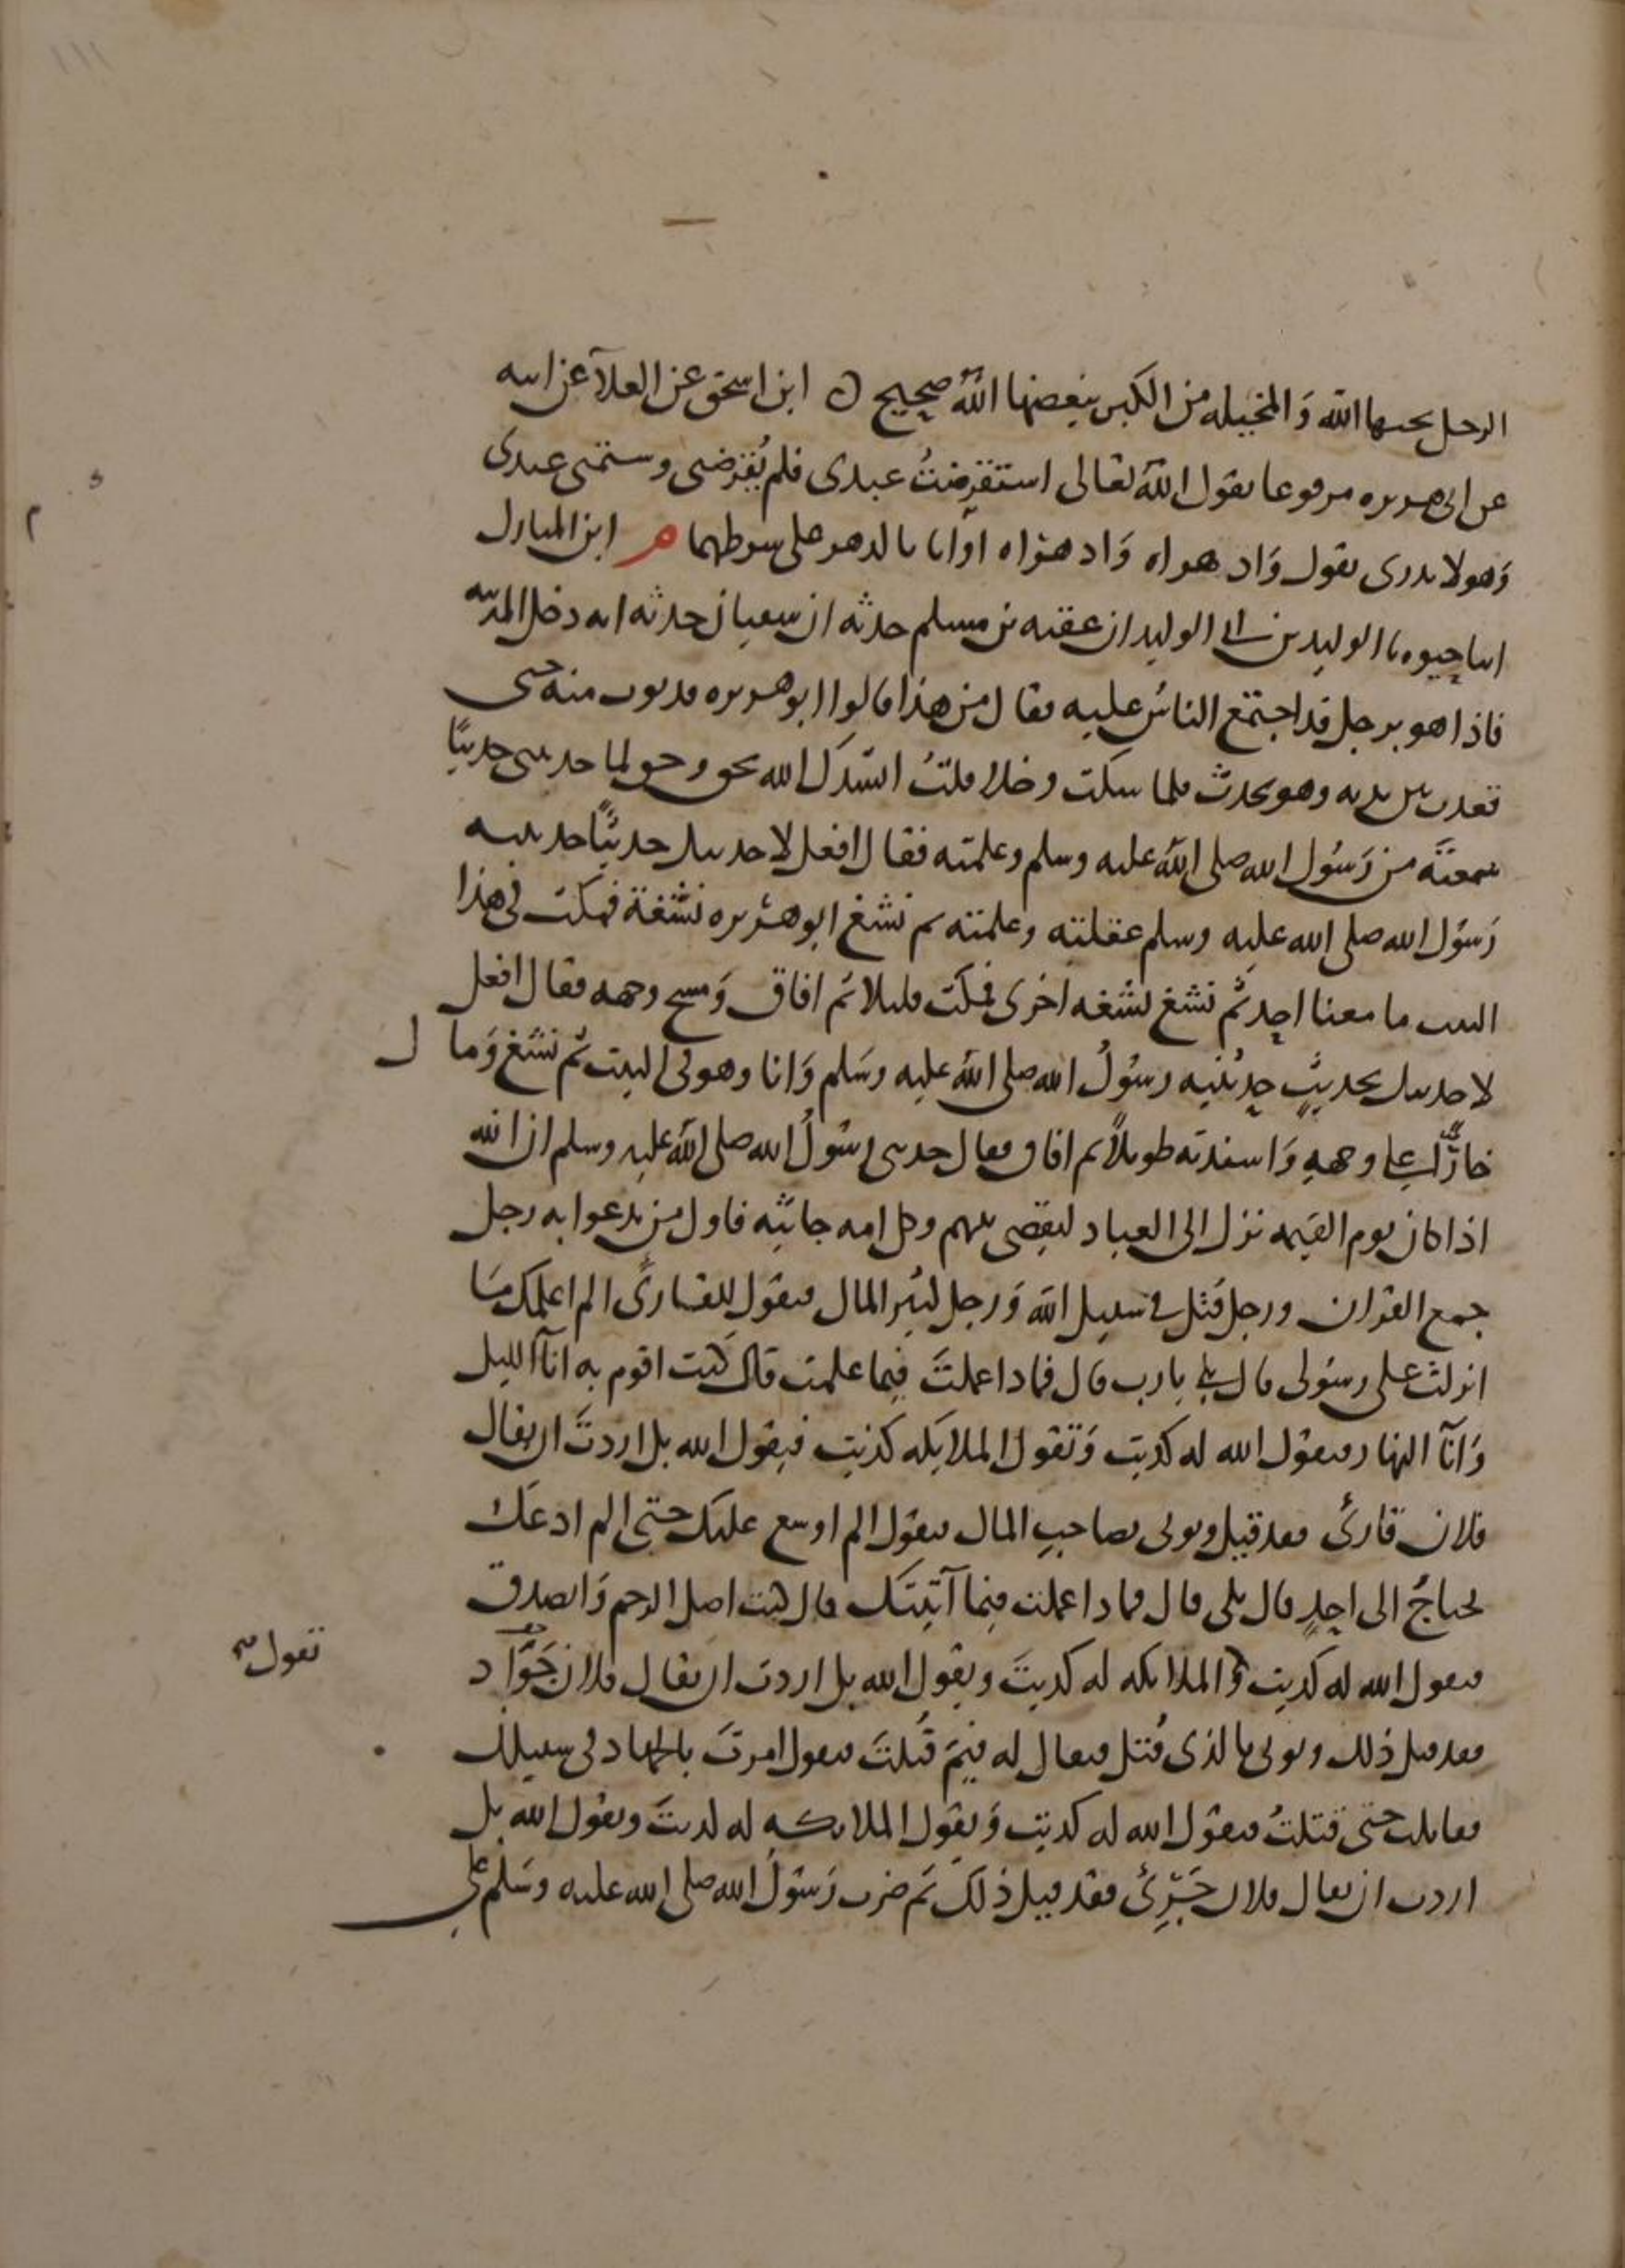 ١١١
الرجل يحبها الله وَالمخيله من الكبر يبغضها اللهُ صحيح ابن اسحق عن العلآ عن ابيه
عن ابى هريره مرفوعا يقول اللهُ تعالى استقرضتُ عبدى فلم يُقرضنى وشتمنى عبدى
وَهو لا يدرى يقول وَاد هراه وَاد هراه اوانا يا لدهر على شرطهما م ابن المبارك
انبا حيوه نا الوليد بن ابى الوليد ان عقبه بن مسلم حدثه ان سفيان حدثه انه دخل المدينه
فاذا هو برجل قد اجتمع الناسُ عليه فقال من هذا قالوا ابو هريره فدنوت منه حتى
قعدت بين يديه وهو يحدث فلما سكت وخلا قلتُ انشدك الله بحق وحق لما حدثتنى حديثًا
سمعتَه من رَسُول الله صلى اللهُ عليه وسلم وعلمته فقال افعل لاحدثنك حديثًا حدثنيه
رَسوُل الله صلى الله عليه وسلم عقلته وعلمته ثم نشغ ابو هريره نشغة فمكث فى هذا
البيت ما معنا احد ثم نشغ نشغه اخرى فمكث قليلا ثم افاق وَمسح وجهه فقال افعل
لاحدثنك بحديثٍ حدثنيه رسُولُ الله صلى اللهُ عليه وسَلم وَانا وهو فى البيت ثم نشغ وَمال
خارًّا على وجههِ وَاسندته طويلاً ثم افاق فقال حدثنى رسُولُ الله صلى اللهُ عليه وسلم ان الله
اذا كان يوم القيمه نزل الى العباد ليقضى بينهم وكل امه جاثيه فاول من يدعوا به رجل
جمع القران ورجل قتل فى سبيل الله وَرجل كثير المال فيقول للقارئ الم اعلمك مَا
انزلتُ على رسوُلى قال بلى يارب قال فماذا عملتَ فيما علمت قال كنت اقوم به انآ الليل
وَانآ النهار فيقول الله له كذبت وَتقول الملايكه كذبت فيقول الله بل اردتَ ان يقال
فلان قارئٌ فقد قيل ويوتى بصاحب المال فيقول الم اوسع عليك حتى الم ادعك
تحتاجُ الى احدٍ قال بلى قال فماذا عملت فيما آتيتك قال كنت اصل الرحم وَاتصدق
فيقول الله له كذبت وَالملايكه له كذبتَ ويقول الله بل اردت ان يقال فلان جَوَّاد
تقول صح
فقد قيل ذلك ويوتى بالذى قُتل فيقال له فيمَ قُتلتَ فيقول امرتَ بالجهاد فى سبيلك
فقاتلت حتى قتلتُ فيقول الله له كذبت وَيقول الملايكه له كذبتَ ويقول الله بل
اردت ان يقال فلان جَرِئٌ فقد قيل ذلك ثم ضرب رَسُولُ الله صلى الله عليه وسَلم على